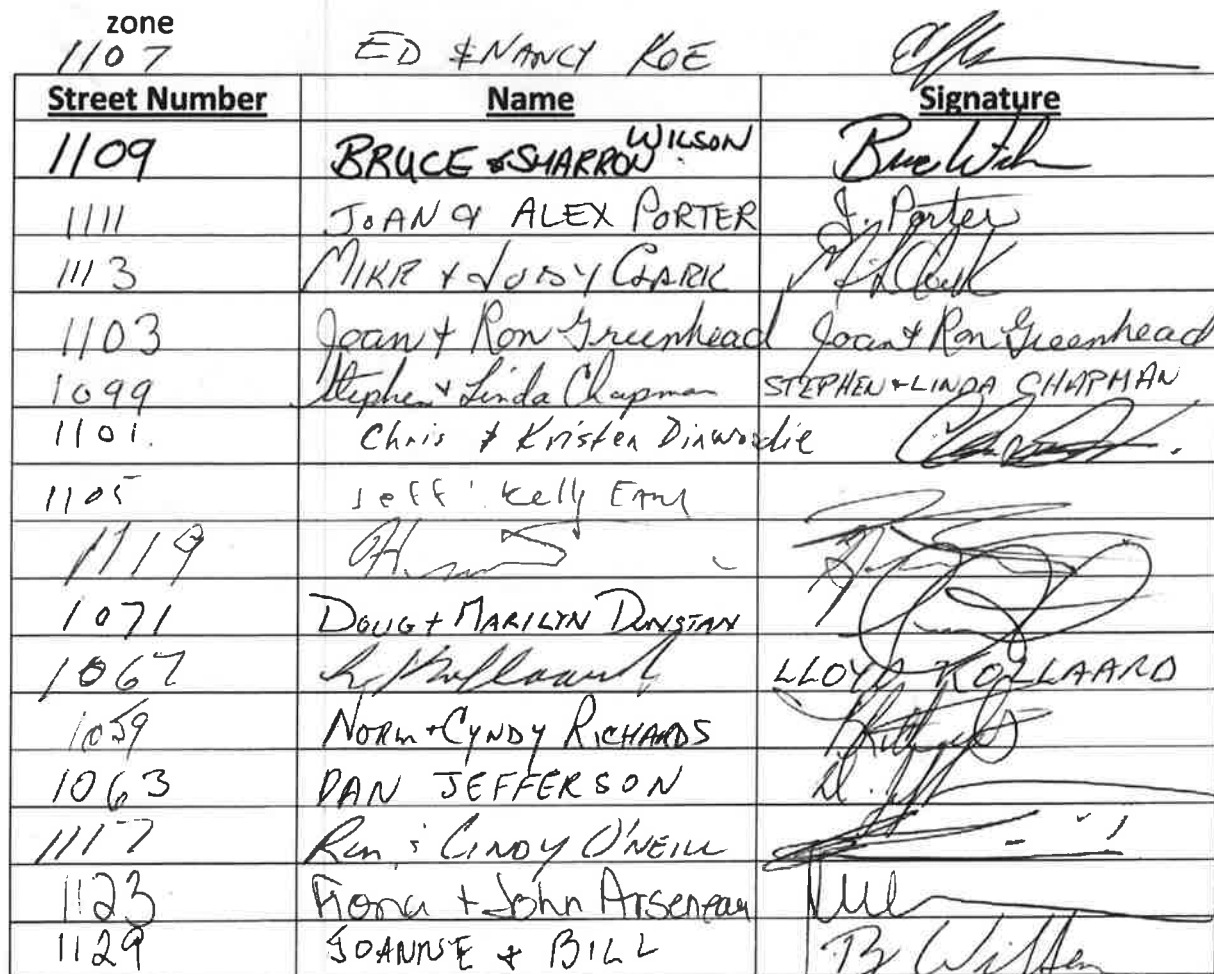 zone
1107 ED & NANCY KOE
Street Number Name Signature
1109 BRUCE & SHARRON WILSON
1111 JOAN & ALEX PORTER J. Porter
1113 MIKE + JUDY CLARK
1103 Joan + Ron Greenhead Joan + Ron Greenhead
1099 Stephen + Linda Chapman STEPHEN + LINDA CHAPMAN
1101. Chris & Kristen Dinwoodie
1105 Jeff Kelly
1119
1071 DOUG + MARILYN DUNSTAN
1067 LLOYD KOLLAARD
1059 NORM + CYNDY RICHARDS
1063 DAN JEFFERSON
1117 CINDY O'NEILL
1123 Fiona + John Arseneau
1129 JOANNE & BILL